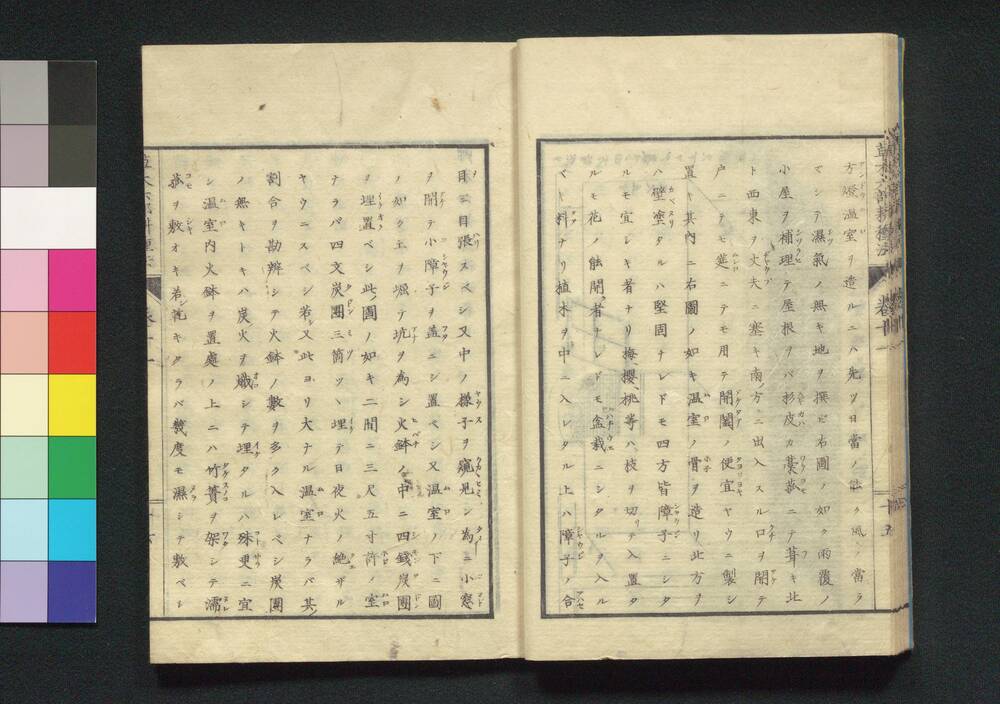 草木六部耕種法 卷十一 十五
方燈温室ヲ造ルニハ先ヅ日當ノ能ク風ノ當ラ
マシテ濕氣ノ無キ地ヲ撰ビ右圖ノ如ク雨覆ノ
小屋ヲ補理テ屋根ヲバ杉皮カ藁菰ニテ葺キ北
ト西東ヲ丈夫ニ塞キ南ノ方ニ出入スル口ヲ開テ
戸ニテモ筵ニテモ用テ開闔ノ便宜ヤウニ製シ
置キ其内ニ右圖ノ如キ温室ノ骨ヲ造リ北方ヲ
ハ壁塗タルハ堅固ナレドモ四方皆障子ニシタ
ルモ宜シキ者ナリ梅櫻桃等ハ枝ヲ切リテ入置タ
ルモ花ノ能開ク者ナレドモ盆栽ニシタルヲ入ル
マキ料ナリ植木ヲ中ニ入レタル上ハ障子ノ合
目ニ目張スベシ又中ノ様子ヲ窺見ン為ニ小窓
ヲ開テ小障子ヲ蓋ニシ置ベシ又温室ノ下ニ圖
ノ如ク土ヲ堀テ坑ヲ為シ火鉢ノ中ニ四錢炭團
ヲ埋置ベシ此圖ノ如キ二間ニ三尺五寸許ノ室
ナラバ四文炭團三箇ツヽ埋テ日夜火ノ絶ザル
ヤウニスベシ若シ又此ヨリ大ナル温室ナラバ其
割合ヲ勘辨シテ火鉢ノ數ヲ多ク入レベシ炭團
ノ無キトキハ炭火ヲ熾シテ埋タルハ殊更ニ宜
シ温室内火鉢ヲ置處ノ上ニハ竹簀ヲ架シテ濡
菰ヲ敷オキ若シ乾キタラバ幾度モ濕シテ敷ベシ